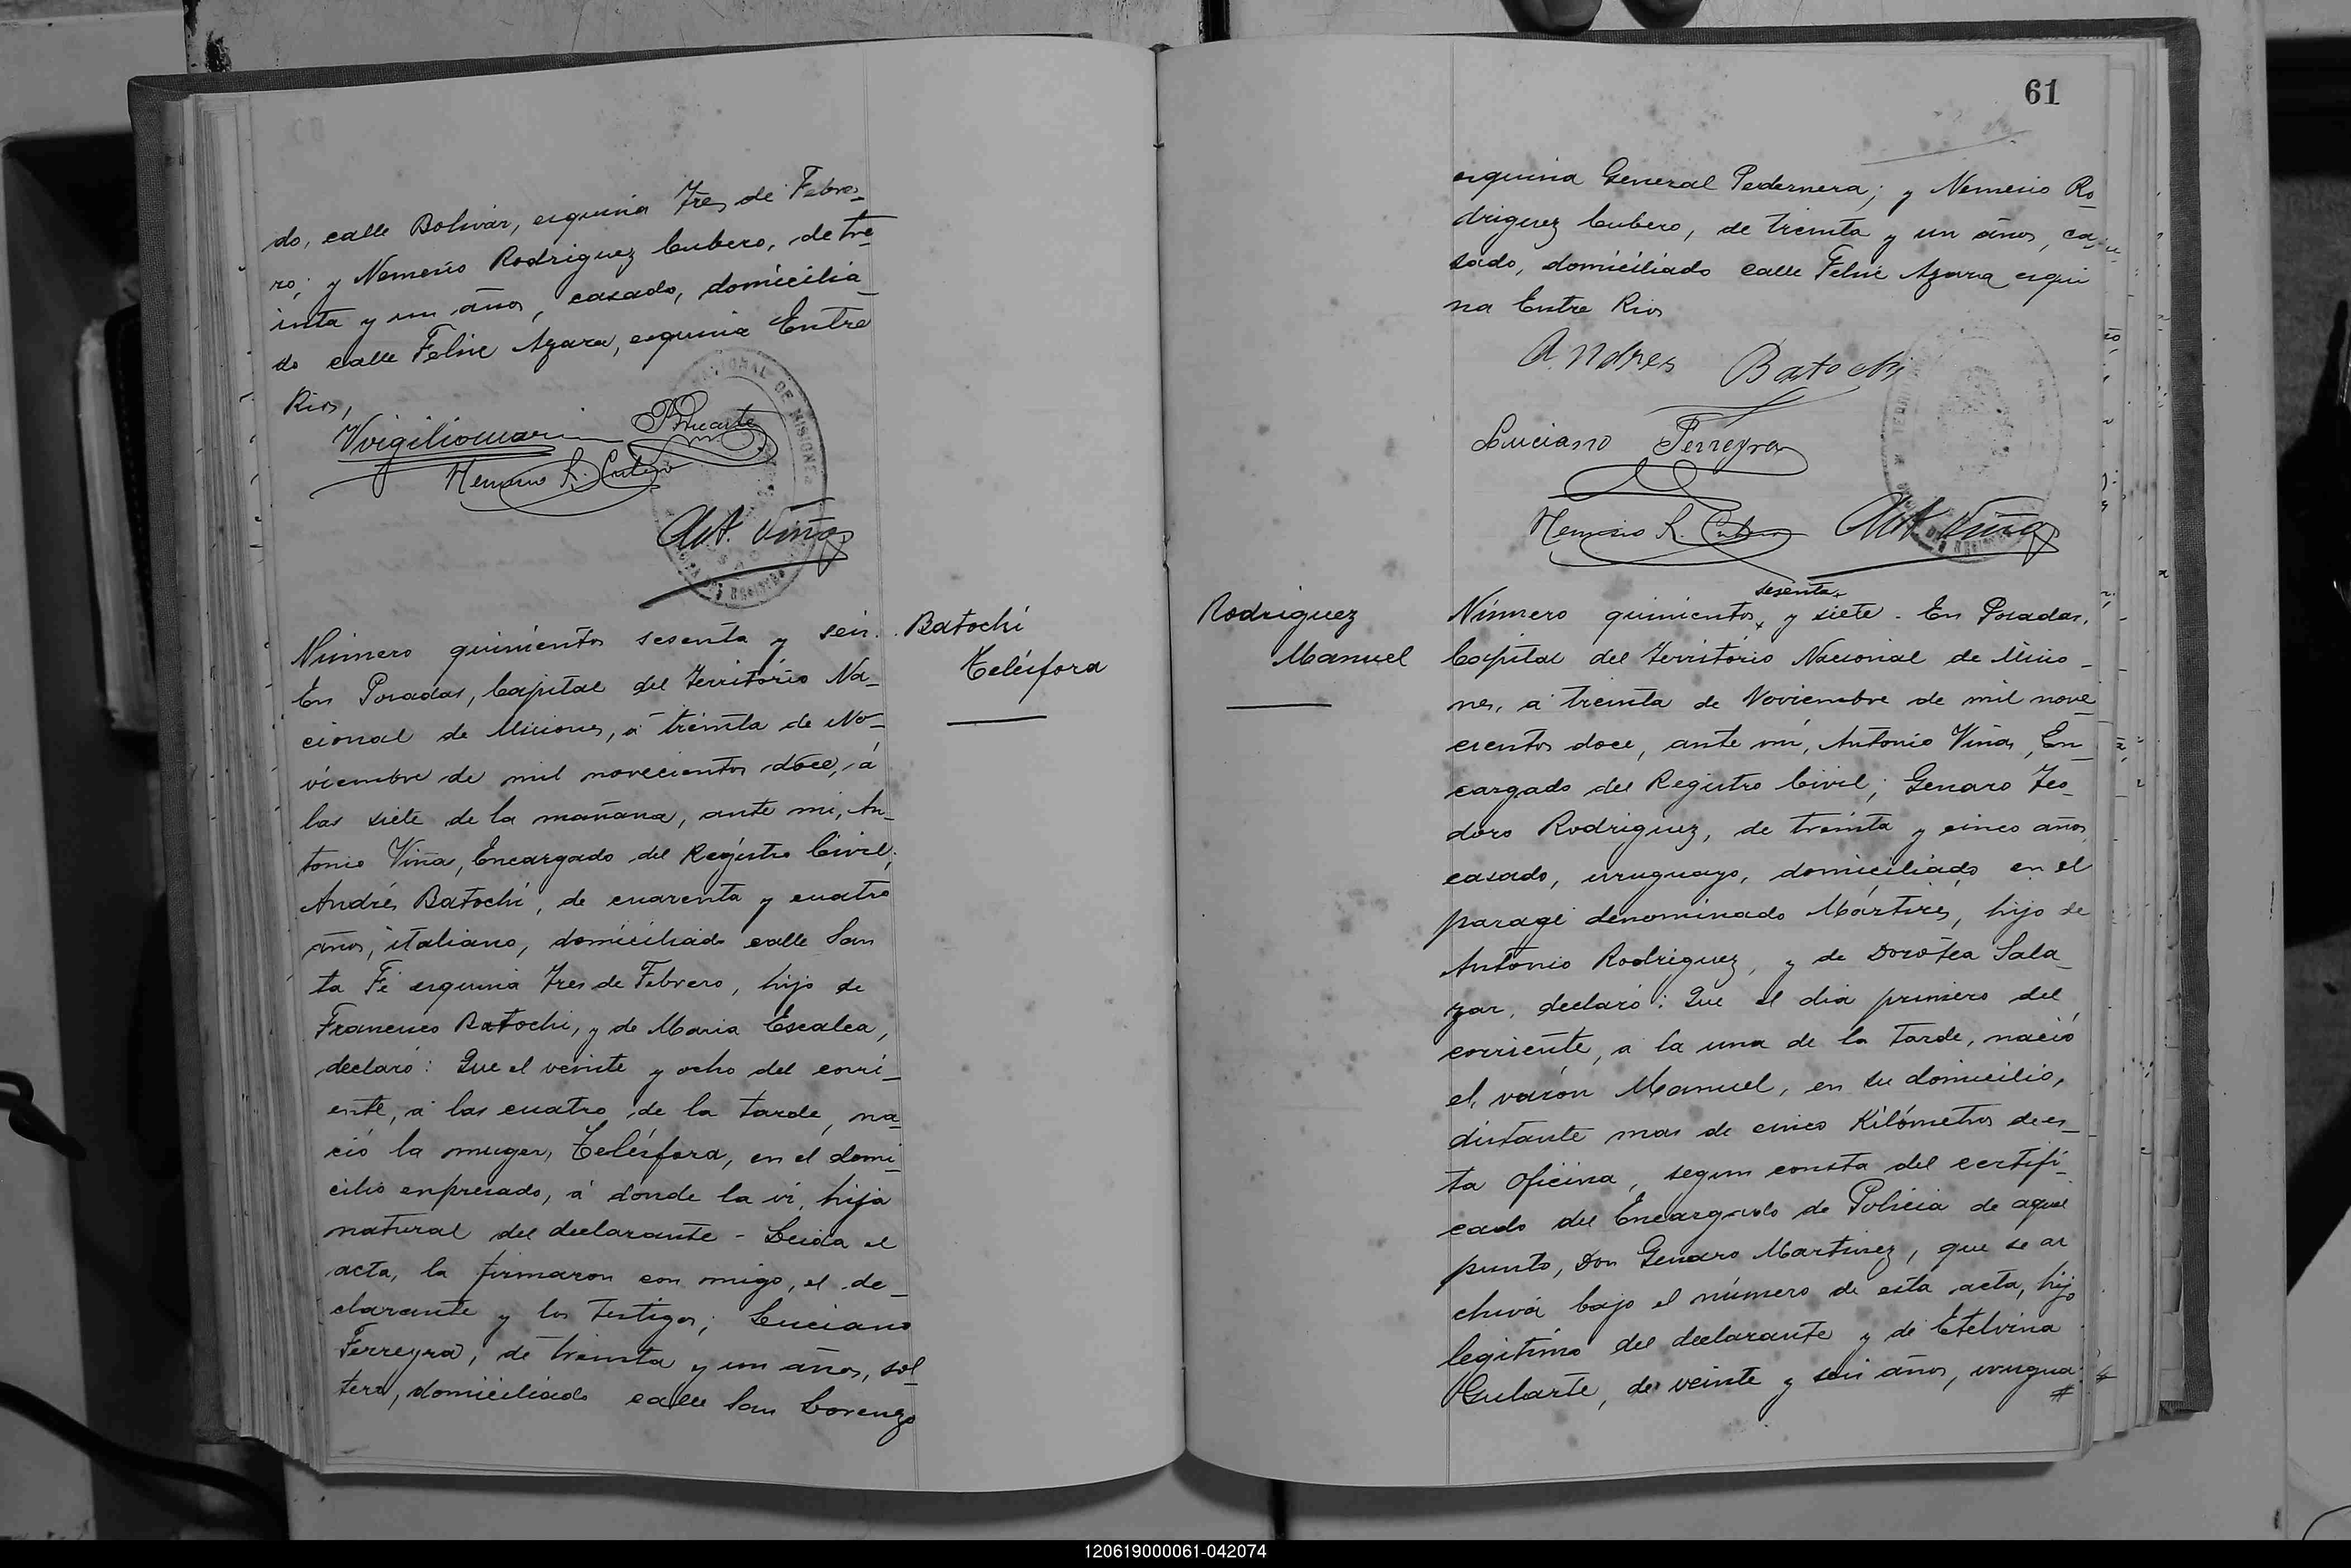 do, calle Bolivar, esquina Tres de Febre_
ro; y Nemesio Rodriguez Cubero, de tre_
inta y un años, casado, domicilia_
do calle Felix Azara, esquina Entre
Rios,
Nemesio R. Cubero
Ant. Viña
Número quinientos sesenta y seis.
En Posadas, Capital del Territorio Na_
cional de Misiones, á treinta de No_
viembre de mil novecientos doce, á
las siete de la mañana, ante mi, An_
tonio Viña, Encargado del Registro Civil;
Andrés Batochi, de cuarenta y cuatro
años, italiano, domiciliado calle San
ta Fé esquina Tres de Febrero, hijo de
Francisco Batochi, y de Maria Escalea,
declaró: Que el veinte y ocho del corri_
ente, á las cuatro de la tarde, na_
ció la muger, Telésfora, en el domi_
cilio enpresado, á donde la ví, hija
natural del declarante - Leida el
acta, la firmaron con migo, el de_
clarante y los testigos; Luciano
Ferreyra, de treinta y un años, sol_
tero, domiciliado calle San Lorenzo
Batochi
Telésfora
61
esquina General Pedernera; y Nemesio Ro_
driguez Cubero, de treinta y un años, ca_
sado, domiciliado calle Felix Azara esqui
na Entre Rios
Andres Batochi
Luciano Ferreyra
Nemesio R. Cubero Ant. Viña
Rodriguez
Manuel
sesenta
Número quinientos y siete. En Posadas,
Capital del Territorio Nacional de Misio_
nes, á treinta de Noviembre de mil nove_
cientos doce, ante mí, Antonio Viña, En_
cargado del Registro Civil; Genaro Teo_
doro Rodriguez, de treinta y cinco años,
casado, uruguayo, domiciliado en el
parage denominado Mártires, hijo de
Antonio Rodriguez, y de Dorotea Sala_
zar, declaró: Que el dia primero del
corriente, á la una de la tarde, nació
el varón Manuel, en su domicilio,
distante mas de cinco Kilómetros de es_
ta oficina, segun consta del certifi_
cado del Encargado de Policia de aquel
punto, Don Genaro Martinez, que se ar
chiva bajo el número de esta acta, hijo
legitimo del declarante y de Etelvina
Gularte, de veinte y seis años, urugua
#
120619000061-042074